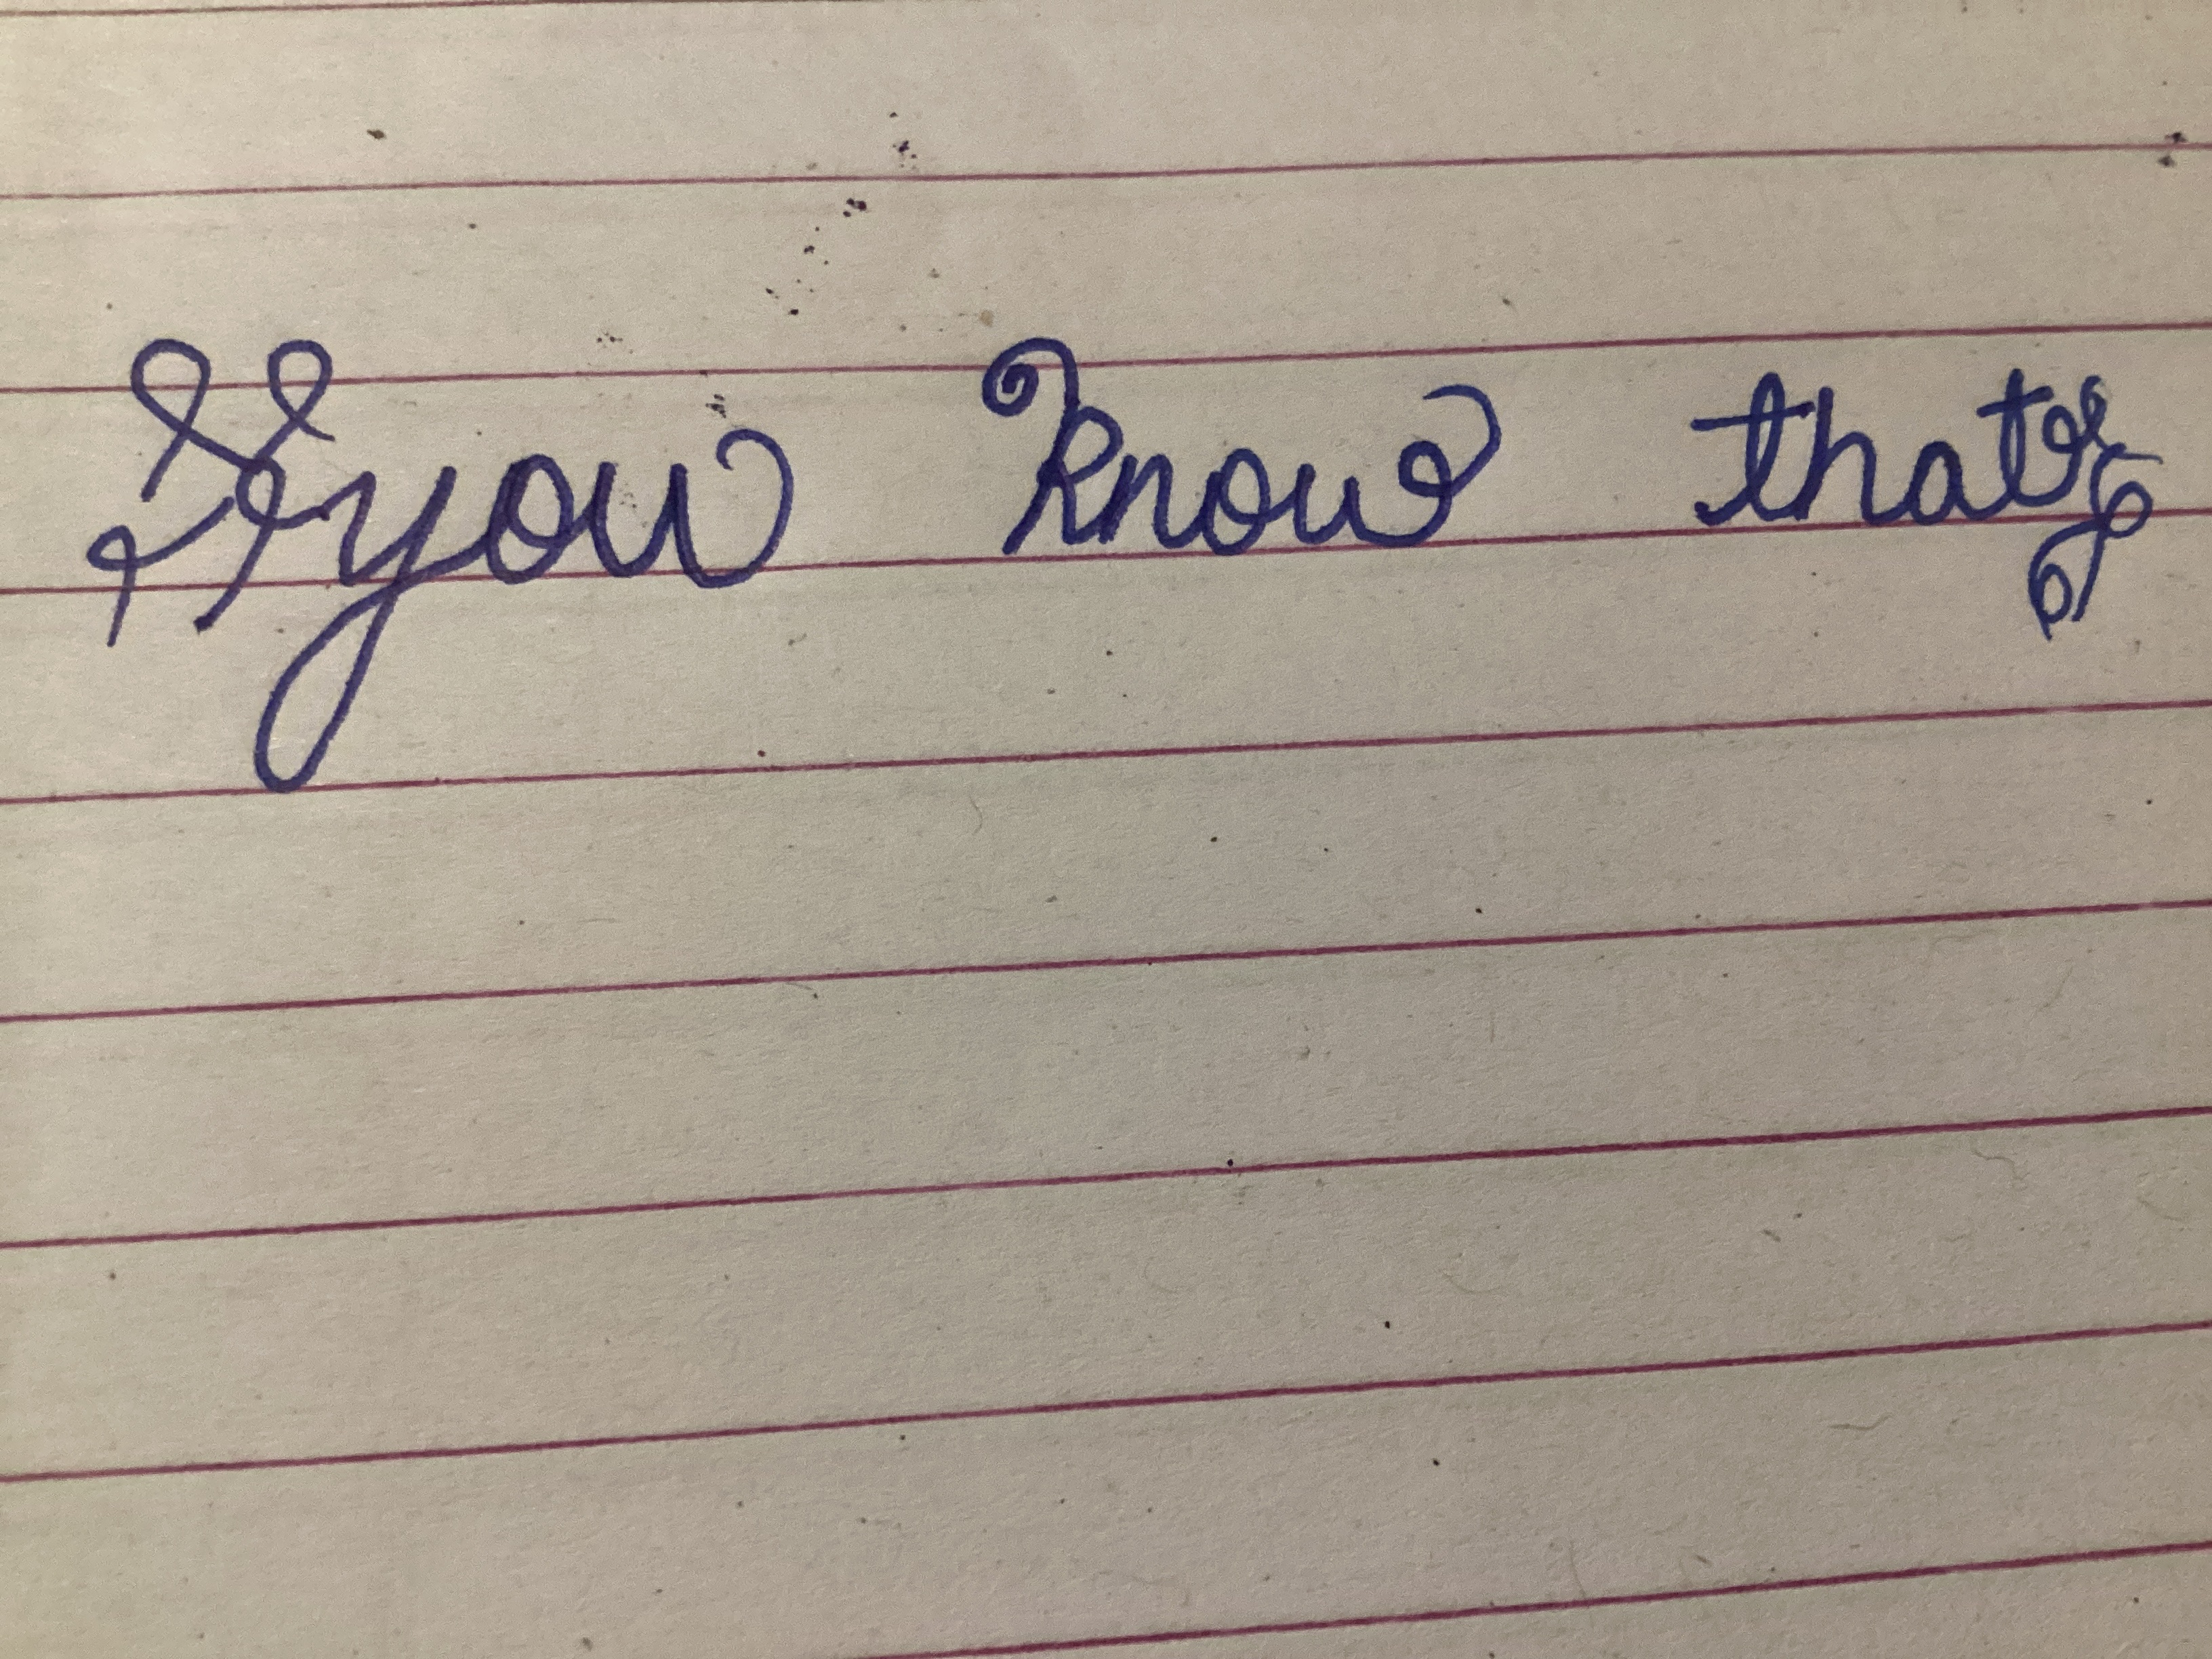 you know that